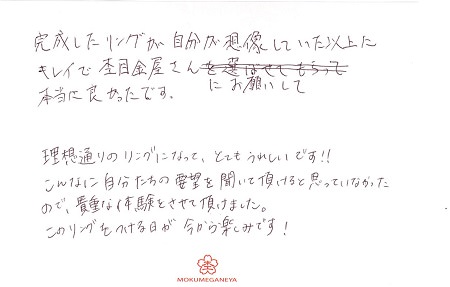 完成したリングが自分が想像していた以上に
キレイで杢目金屋さんを選ばせてもらって
にお願いして
本当に良かったです。
理想通りのリングになって、とてもうれしいです!!
こんなに自分たちの要望を聞いて頂けると思っていなかった
ので、貴重な体験をさせて頂けました。
このリングをつける日が今から楽しみです!
MOKUMEGANEYA